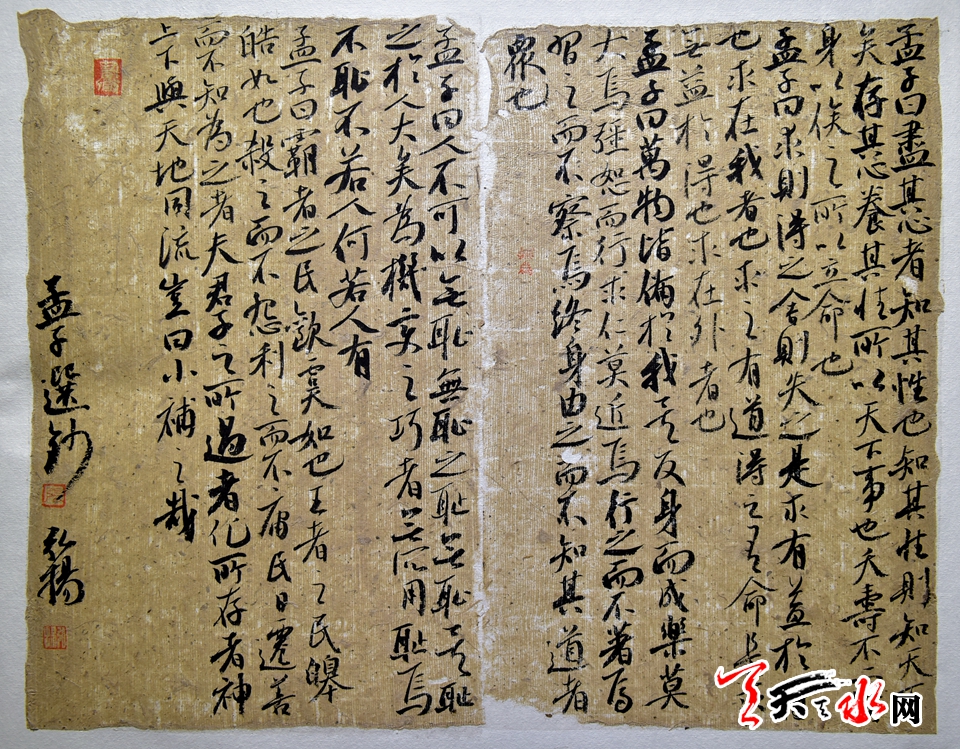 孟子曰盡其心者知其性也知其性則知天
矣存其心養其性所以天下事也夭壽不
身以俟之所以立命也
孟子曰求則得之舍則失之是求有益於
也求在我者也求之有道得之有命是
無益於得也求在外者也
孟子曰萬物皆備於我矣反身而成樂莫
大焉強恕而行求仁莫近焉行之而不著焉
習之而不察焉終身由之而不知其道者
眾也
孟子曰人不可以無恥無恥之恥無恥矣恥
之於人大矣為機變之巧者無所用恥焉
不恥不若人何若人有
孟子曰霸者之民歡虞如也王者之民皞
皓如也殺之而不怨利之而不庸民日遷善
而不知為之者夫君子之所過者化所存者神
上下與天地同流豈曰小補之哉
孟子選鈔 弘揚
天天天水网